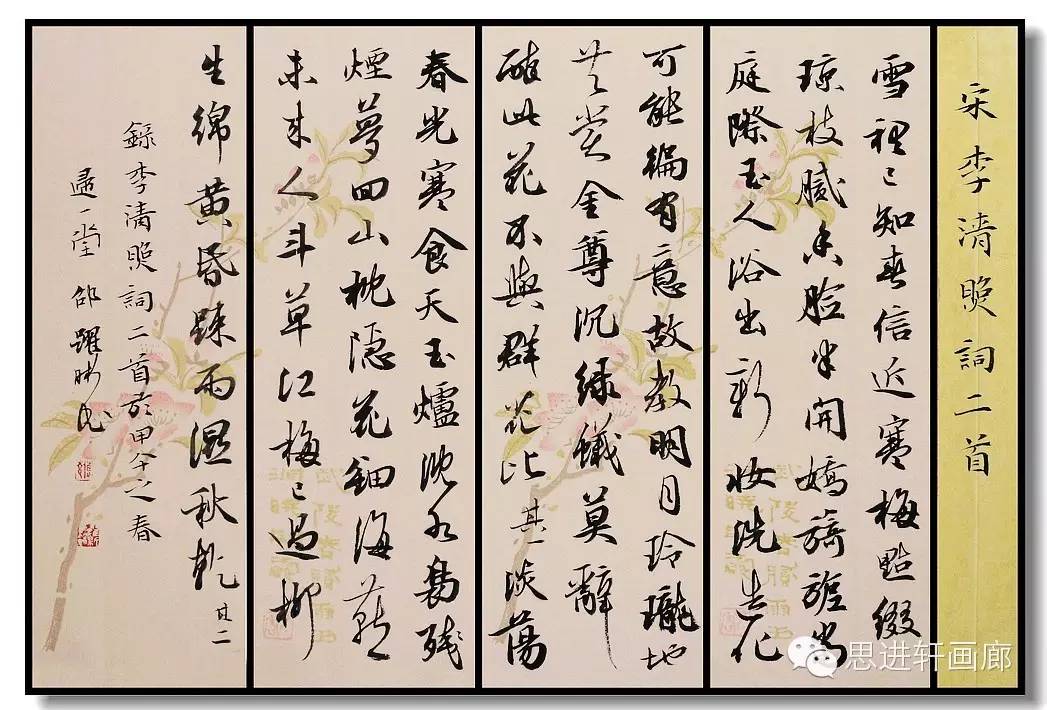 宋李清照詞二首
雪裡已知春信近寒梅點綴
瓊枝膩香臉半開嬌旖旎當
庭際玉人浴出新妝洗造化
可能徧有意故教明月玲瓏地
共賞金尊沉綠蟻莫辭
醉此花不與群花比其一淡蕩
春光寒食天玉爐沈水裊殘
煙夢回山枕隱花鈿海燕
未來人斗草江梅已過柳
生綿黃昏疎雨濕秋乾其二
錄李清照詞二首於甲午之春
一堂邵躍
思进轩画廊